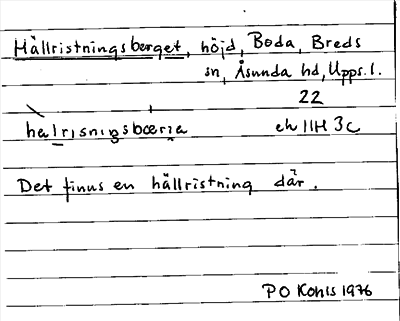 Hällristningsberget, höjd, Boda, Breds
sn, Åsunda hd, Upps. l.
22
halrisnigsbœrja
ek 11H 3c
Det finns en hällristning där.
PO Kohls 1976